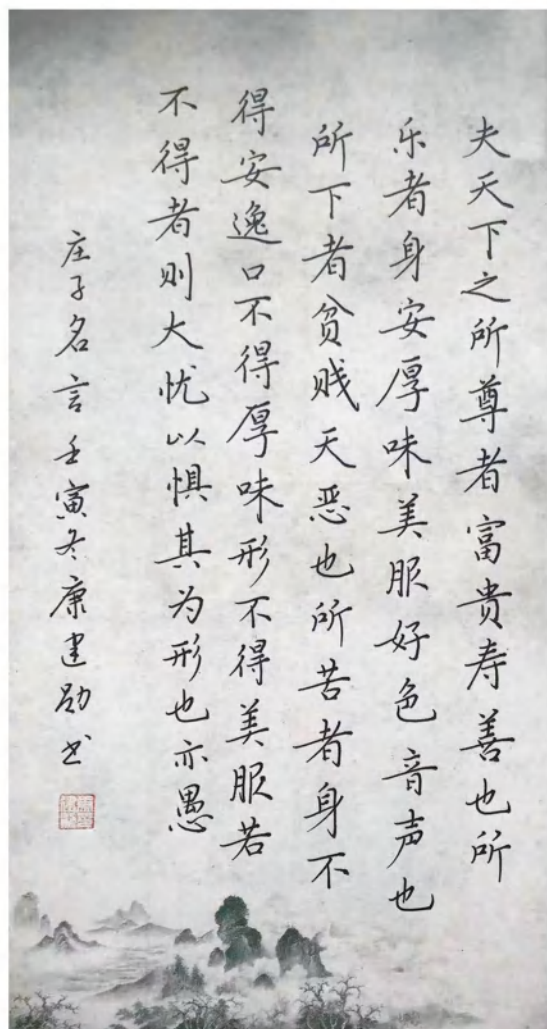 夫天下之所尊者富贵寿善也所
乐者身安厚味美服好色音声也
所下者贫贱天恶也所苦者身不
得安逸口不得厚味形不得美服若
不得者则大忧以惧其为形也亦愚
庄子名言壬寅冬康建勋书